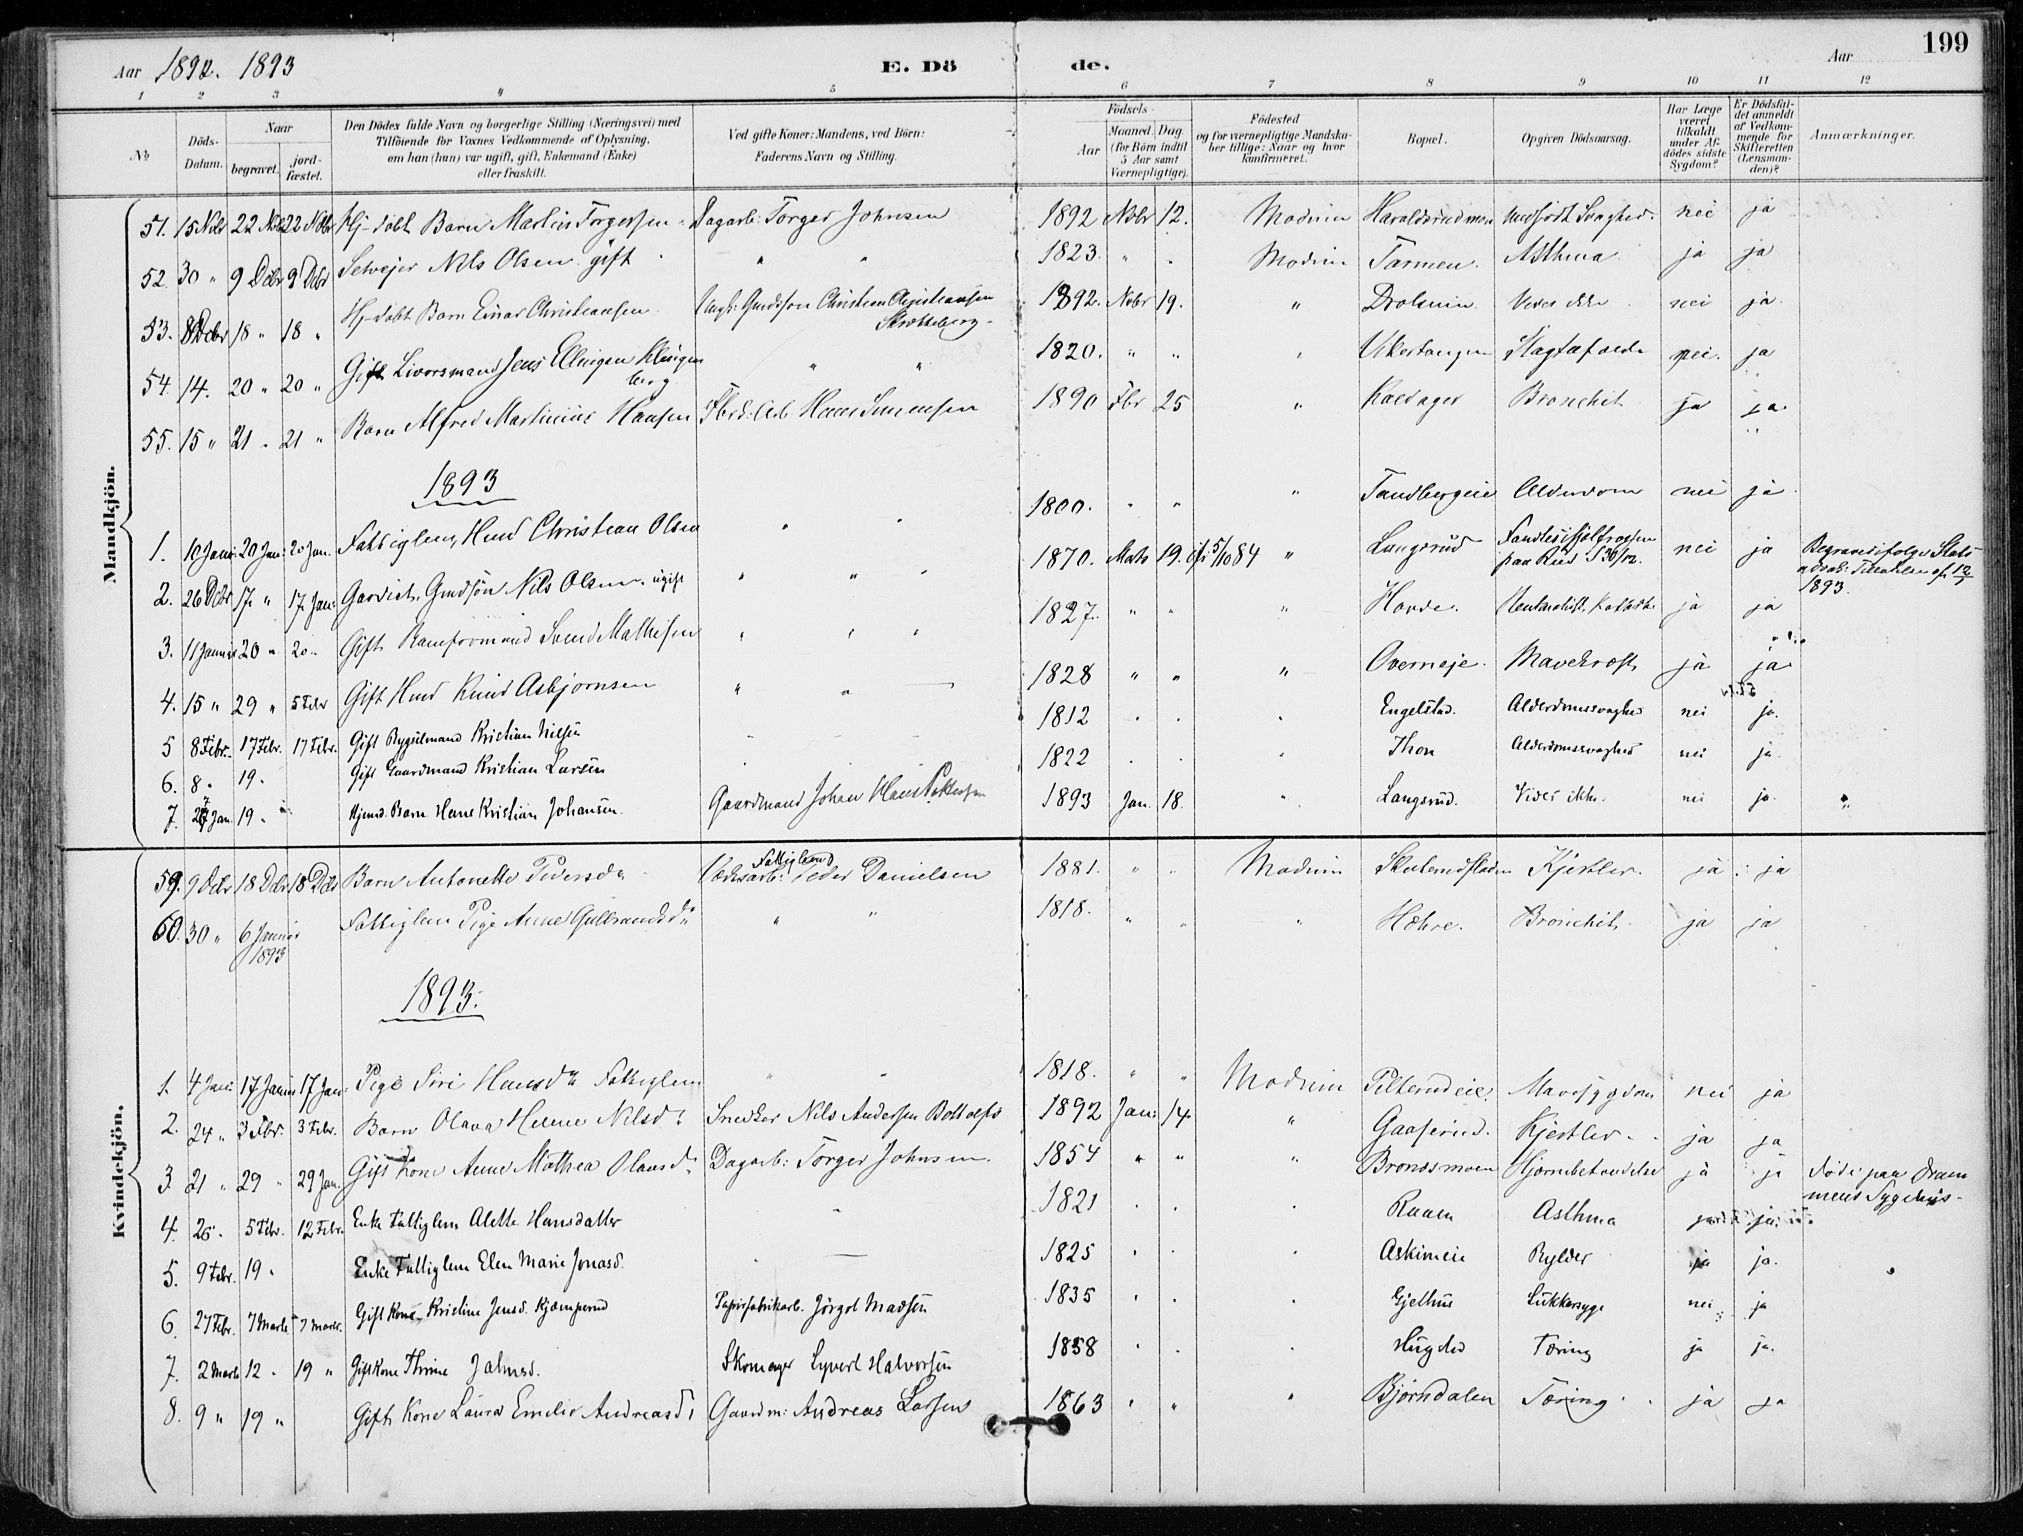 199
Aar 1892. 1893
E. Dö de.
Aar
1 2 3 4 5 6 7 8 9 10 11 12
No
Döds-Datum.
Naar
begravet.
jord-fæstet.
Den Dödes fulde Navn og borgerlige Stilling (Næringsvei) med
Tilföiende for Voxnes Vedkommende af Oplysning,
om han (hun) var ugift, gift, Enkemand (Enke)
eller fraskilt.
Ved gifte Koner: Mandens, ved Börn:
Faderens Navn og Stilling.
Födsels-
Aar
Maaned. Dag.
(for Börn indtil
5 Aar samt
Værnepligtige).
Födested
og for værnepligtige Mandska-
ber tillige: Naar og hvor
konfirmeret.
Bopæl.
Opgiven Dödsaarsag.
Har Læge
været
tilkaldt
under Af-
dödes sidste
Sygdom?
Er Dödsfal-
det anmeldt
af Vedkom-
mende for
Skifteretten
(Lensman-
den)?
Anmærkninger.
Mandkjön.
51. 15 Nvbr 22 Nvbr 22 Nvbr Hj-döbt Barn Martin Torgersen Dagarb: Torger Johnsen 1892 Nvbr 12. Modum Haraldsrudmoen Medfödt Svaghed. nei ja
52. 30 " 9 Dcbr 9 Dcbr Selveier Nils Olsen gift " " 1823. " . Modum Tarmen. Asthma ja ja
53. 8 Dcbr 18 " 18 " Hj-döbt Barn Einar Christiansen Ungk: Gmdssön Christian Christiansen
Skrotteberg 1892. Nvbr 19. " Drolsum. Vides ikke nei ja
54. 14. 20 " 20 " Gift Livorsmand Jens Ellingsen Klingen
berg " " 1820. " " " Vikertangen Slagtilfælde nei. ja
55. 15 " 21 " 21 " Barn Alfred Martinius Hansen Fbrd: Arb. Hans Simensen 1890 Fbr 25 " Kaldager Bronchit ja ja
1893
1. 10 Janr: 20 Jan: 20 Jan. Fattiglem, Husmd Christian Olsen " " 1800. " " " Tandbergeie Alderdom nei ja
2. 26 Dcbr 17. " 17 Jan: Gaardst. Gmdssön Nils Olsen. ugift " " " 1870. Mats 19. cfr 5/10 84 " Langsrud Fandtes ihjelfrossen
paa Rud d 30/12. nei ja Begravet ifölge Stats
advok: Tilladelse af 12/1
1893.
3. 11 Januar 20 " 20 " Gift Kamformand Svend Mathisen " " " 1827. " " " Hovde. ja ja
4. 15 " 29 " 5 Febr Gift Husmd Knud Asbjornsen " " 1828 " " " Overneje. Mavekræft ja ja
5 8 Febr. 17 Febr. 17 Febr. Gift Bygselmand Kristian Nilsen 1812 . . " Engelstad. Alderdomssvaghed nei ja.
6. 8 " 19 " Gift Gaardmand Kristian Larsen 1822 . . " Thon Alderdomssvaghed nei ja.
7. 27 Jan. 19 " Hjemd. Barn Hans Kristian Johansen. Gaardmand Johan Hans Pettersen 1893 Jan. 18. " Langsrud. Vides ikke. nei ja.
Kvindekjön.
59. 9 Dcbr 18 Dcbr 18 Dcbr Barn Antonette Pedersdr Fattiglem
Peder Danielsen 1881. " " Modum Skuterudfladen Kjertler. ja ja
60. 30 " 6 Januar
1893 Fattiglem Pige Anne Gulbrandsdr " " 1818. " " " Hæhre. Bronchit. ja ja
1893.
1. 4 Jan: 17 Januar 17 Jan: Pige Siri Hansdr Fattiglem " " 1818. " " Modum Pilterudeie. Mavesygdom nei ja
2. 24 " 3 Fbr. 3 Febr. Barn Olava Helene Nilsdr Snedker Nils Andersen Bottolfs 1892 Jan: 14. " Gaaserud. Kjertler. ja ja
3. 21 " 29 " 29 Jan. Gift Kone Anne Mathea Olausdr Dagarb: Torger Johnsen. 1854 " " " Brondsmoen Hjernebetændelse ja ja Död paa Dram
mens Sygehus.
4. 26 " 5 Febr. 12 Febr. Enke Fattiglem Alette Hansdatter " 1821 . . . Ruaen Asthma ja ja.
5. 9 Febr. 19 " Enke Fattiglem Elen Marie Jonasd. 1825 . . " Askimeie Bylder ja ja.
6. 27 Febr. 7 Marts 7 Marts. Gift Kone Kristine Jensd. Kjæmperud Papirfabrikarb. Jörgen Madsen 1835 . . " Gjelhus Sukkersyge nei ja
7. 2 Marts 12 " 19 " Gift Kone Thrine Jahnsd. Skomager Syvert Halvorsen 1858 . . . Hugsted Tæring ja ja.
8. 9 " 19 " Gift Kone Laura Emilie Andreasd: Gaardm: Andreas Larsen 1863 " " " Bjørndalen Tæring ja ja